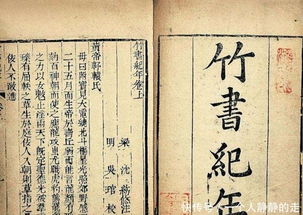 竹書紀年
竹書紀年卷上
梁 沈 約 附注
明 吳琯 校
黃帝軒轅氏
母曰附寶見大電繞北斗樞星光照郊野感
二十五月而生帝於壽丘弱而能言龍
劾百神朝而使之應龍攻蚩尤戰虎豹熊羆
之力以女魃止淫雨天下既定聖德光被
臻有屈軼之草生於庭佞人入朝則草指之
佞人不敢進
快传号/人静静的走